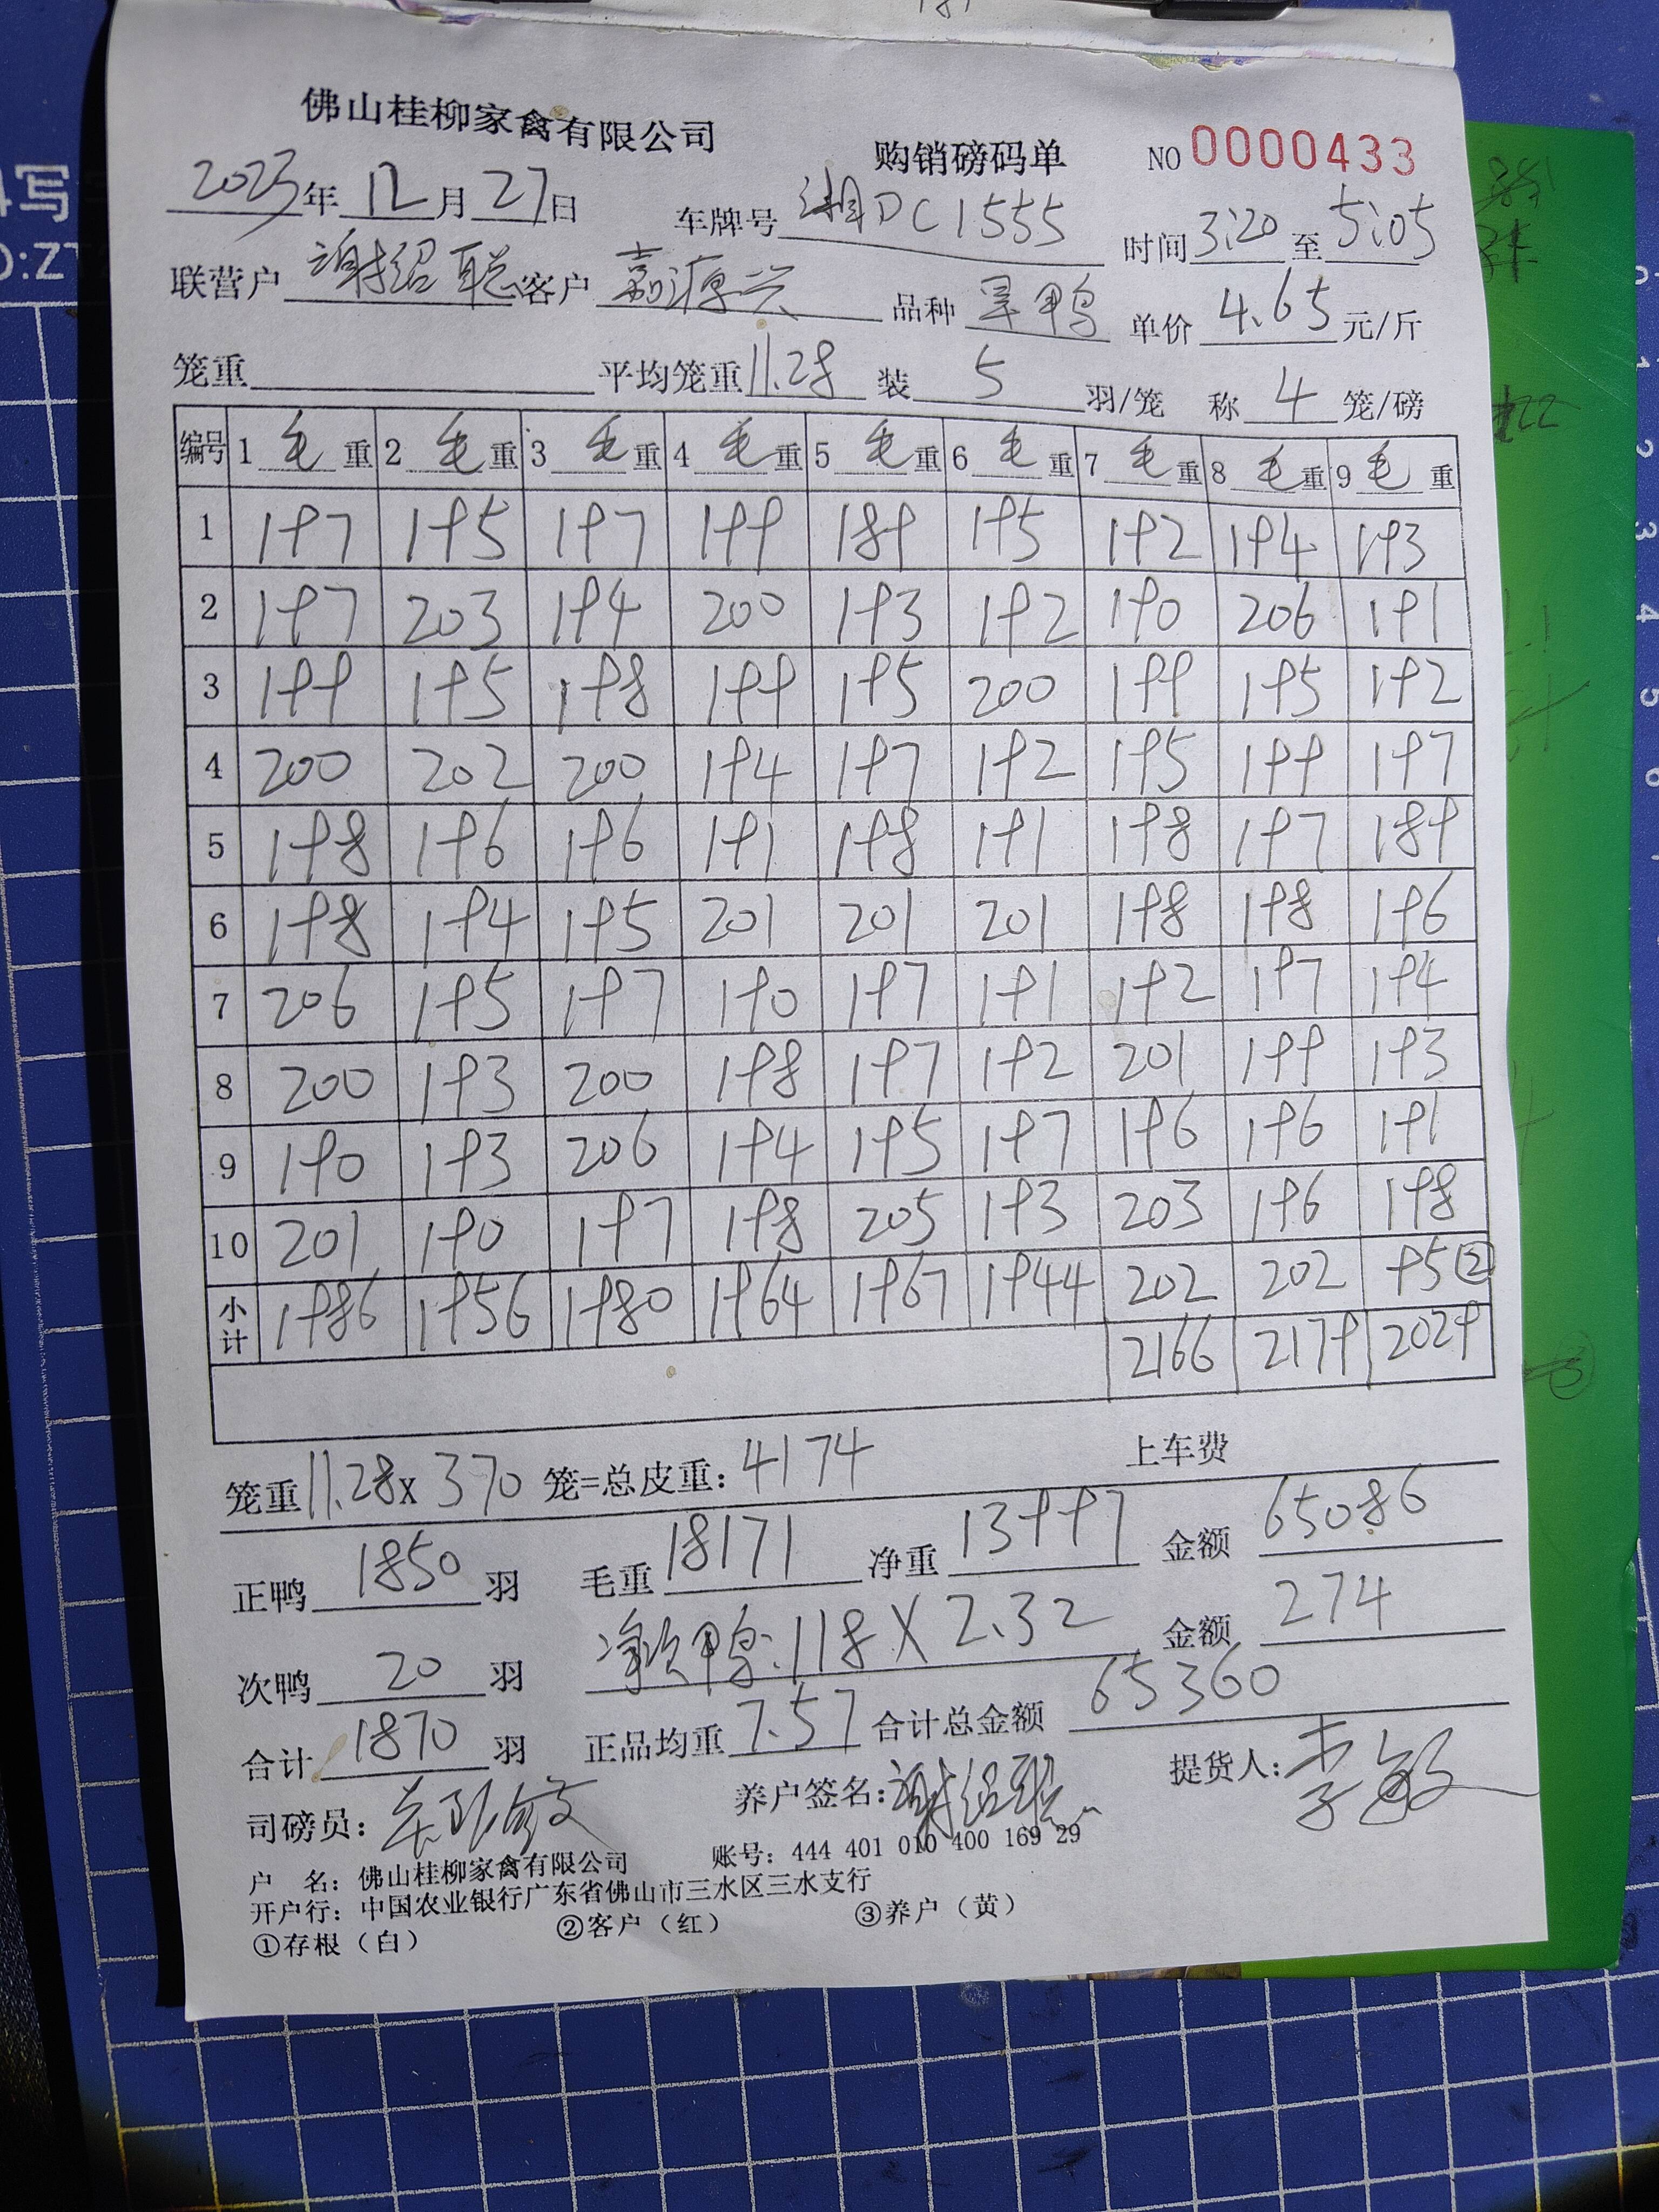 佛山桂柳家禽有限公司 购销磅码单 NO 0000433
2023年12月27日 车牌号 湘DC1555 时间 3:20 至 5:05
联营户 谢绍聪 客户 嘉源兴 品种 旱鸭 单价 4.65 元/斤
笼重 平均笼重 11.28 装 5 羽/笼 称 4 笼/磅
编号 1 毛 重 2 毛 重 3 毛 重 4 毛 重 5 毛 重 6 毛 重 7 毛 重 8 毛 重 9 毛 重
1 197 195 197 199 189 195 192 194 193
2 197 203 194 200 193 192 190 206 191
3 199 195 198 199 195 200 199 195 192
4 200 202 200 194 197 192 195 199 197
5 198 196 196 191 198 191 198 197 189
6 198 194 195 201 201 201 198 198 196
7 206 195 197 190 197 191 192 197 194
8 200 193 200 198 197 192 201 199 193
9 190 193 206 194 195 197 196 196 191
10 201 190 197 198 205 193 203 196 198
小计 1986 1956 1980 1964 1967 1944 202 202 95②
2166 2179 2029
笼重 11.28 x 370 笼=总皮重: 4174 上车费
正鸭 1850 羽 毛重 18171 净重 13997 金额 65086
次鸭 20 羽 净次鸭:118 X 2.32 金额 274
合计 1870 羽 正品均重 7.57 合计总金额 65360
司磅员: 养户签名: 谢绍聪 提货人: 李敏
户 名: 佛山桂柳家禽有限公司 账号: 444 401 010 400 169 29
开户行: 中国农业银行广东省佛山市三水区三水支行
①存根（白） ②客户（红） ③养户（黄）